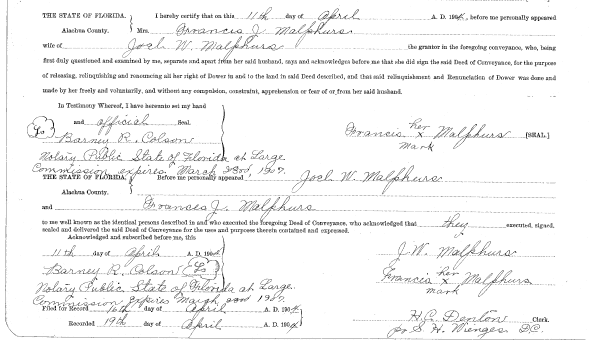 THE STATE OF FLORIDA. I hereby certify that on this 11th day of April A. D. 1904, before me personally appeared
Alachua County. Mrs. Francis J. Malphurs
wife of Joel W. Malphurs the grantor in the foregoing conveyance, who, being
first duly questioned and examined by me, separate and apart from her said husband, says and acknowledges before me that she did sign the said Deed of Conveyance, for the purpose
of releasing, relinquishing and renouncing all her right of Dower in and to the land in said Deed described, and that said relinquishment and Renunciation of Dower was done and
made by her freely and voluntarily, and without any compulsion, constraint, apprehension or fear of or from her said husband.
In Testimony Whereof, I have hereunto set my hand
and official Seal.
Ls
Barney R. Colson
Notary Public State of Florida at Large
Commission expires March 23rd, 1907.
her
Francis x Malphurs [SEAL]
mark
THE STATE OF FLORIDA. Before me personally appeared Joel W. Malphurs
Alachua County.
and Francis J. Malphurs
to me well known as the identical persons described in and who executed the foregoing Deed of Conveyance, who acknowledged that they executed, signed,
sealed and delivered the said Deed of Conveyance for the uses and purposes therein contained and expressed.
Acknowledged and subscribed before me, this
11th day of April A. D. 1904
Barney R. Colson Ls
Notary Public State of Florida at Large.
Commission expires March 23rd 1907.
J. W. Malphurs
her
Francis x Malphurs
mark
Filed for Record 16th day of April A. D. 1904
Recorded 19th day of April A. D. 1904
H. C. Denton Clerk.
pr S. H. Wienges D.C.